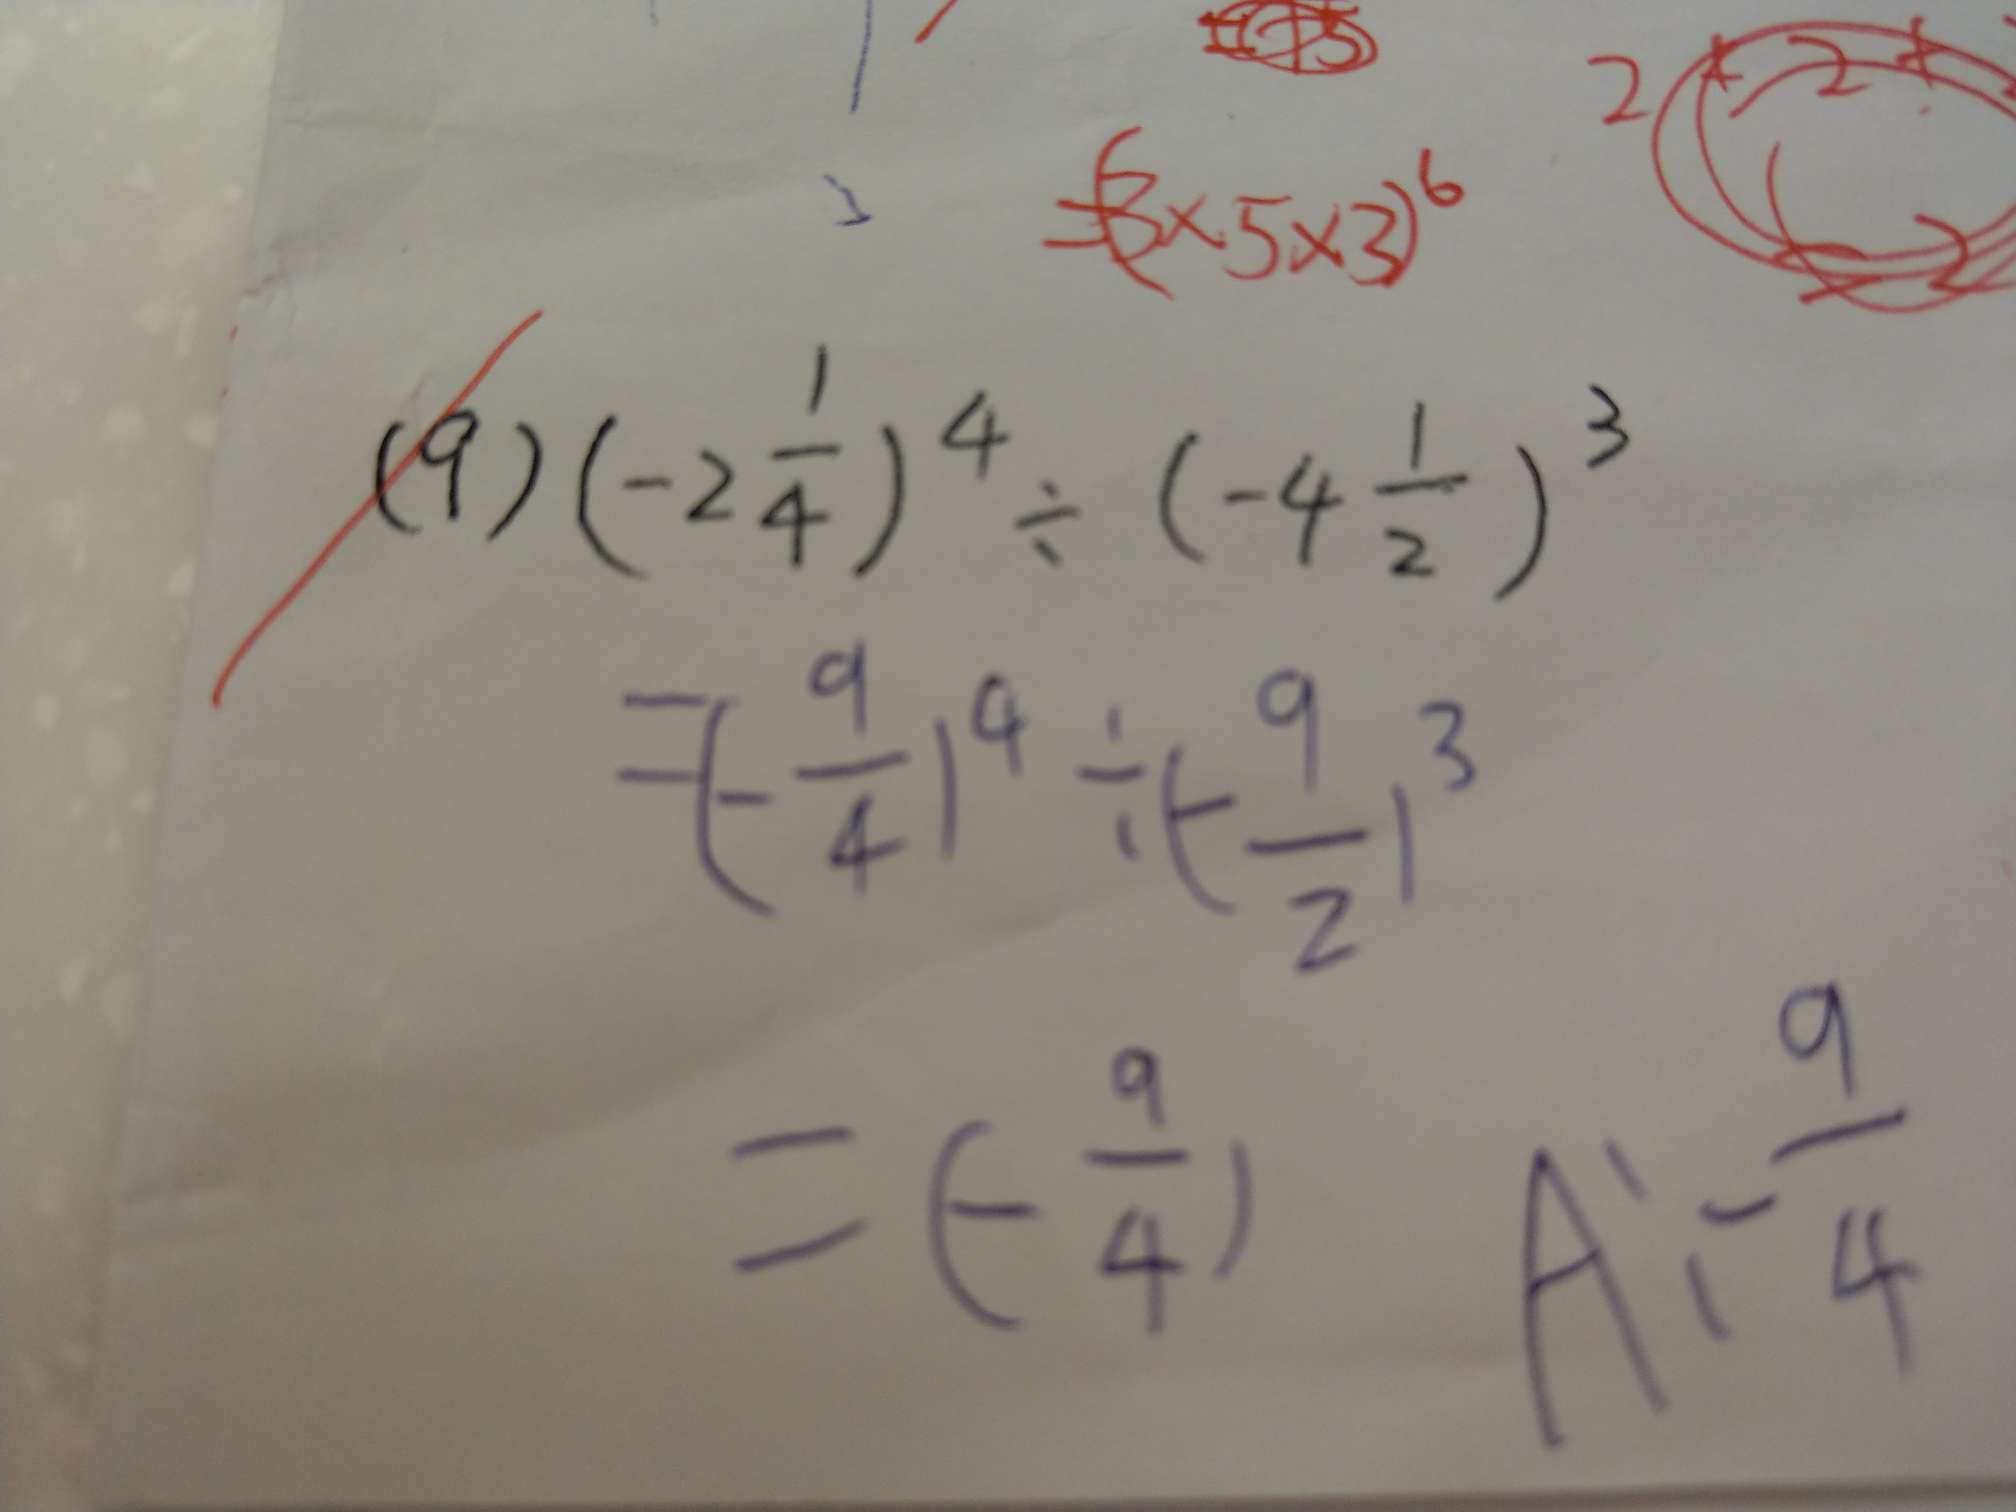 =(3×5×3)⁶
2
(9) (-2 1/4)⁴ ÷ (-4 1/2)³
=(-9/4)⁴ ÷ (-9/2)³
= (-9/4) A: -9/4